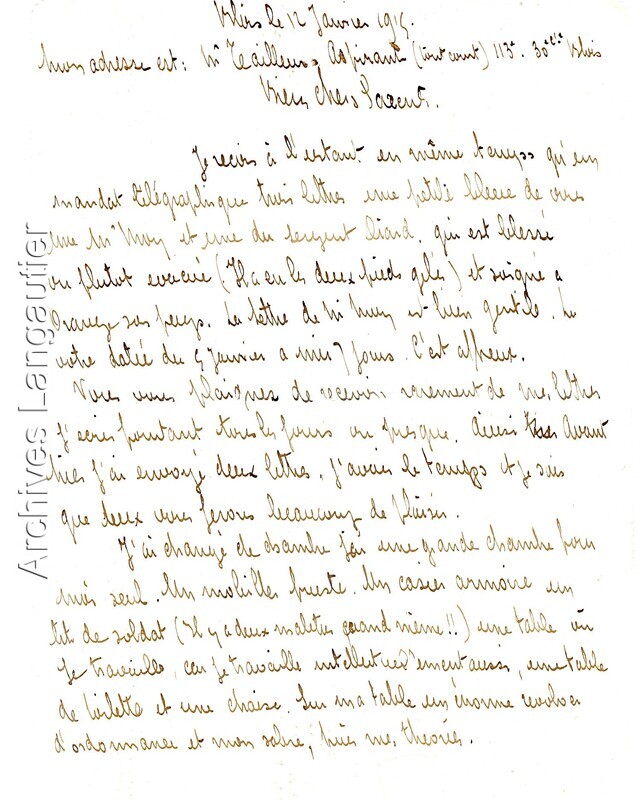 Blois le 12 Janvier 1915.
mon adresse est: Mr Aspirant (tout court) 113e. 30e Cie Blois
Biens chers Parents.
Je reçois à l'instant en même temps qu'un
mandat télégraphique trois lettres une petite bleue de vous
une Mr Mory et une du sergent Liard, qui est blessé
ou plutot evacué (Il a eu les deux pieds gelés) et soigné a
La lettre de Mr est bien gentile. La
votre datée du 5 Janvier a mis 7 jours. C'est affreux.
Vous vous plaignez de recevoir rarement de mes lettres
J'ecris pourtant tous les jours ou presque. Ainsi Avant
hier j'ai envoyé deux lettres, j'avais le temps et je sais
que deux vous ferons beaucoup de plaisir.
J'ai changé de chambre j'ai une grande chambre pour
moi seul. Un mobilier fruste. Un casier armoire un
lit de soldat (Il y a deux matelas quand même!!) une table où
Je travaille, car je travaille intellectuellement aussi, une table
de toilette et une chaise. Sur ma table un énorme revolver
d'ordonnance et mon sabre, puis mes theories.
Archives Langautier